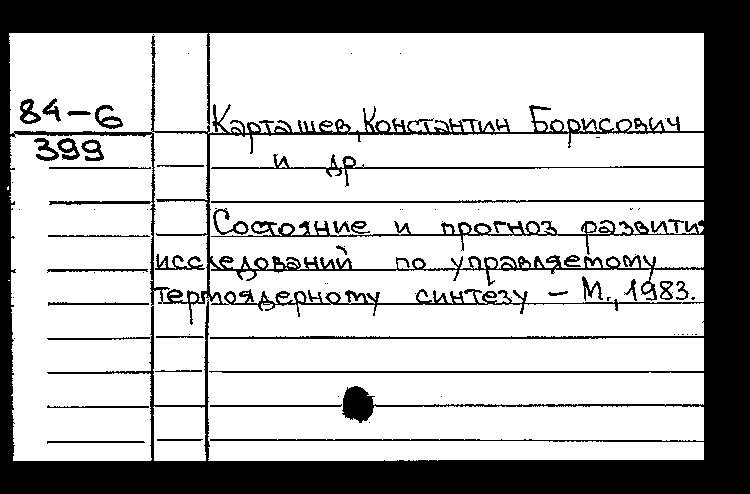 84-6
399
Карташев, Константин Борисович
и др.
Состояние и прогноз развития
исследований по управляемому
термоядерному синтезу - М., 1983.